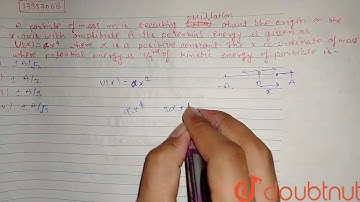 19357008
oscillation
A particle of mass m is executing about the origin on the
x-axis with amplitude A its potential energy is given as
U(x) = αx⁴ where α is a positive constant the x coordinate of mass
where potential energy is 1/3rd of kinetic energy of particle is -
± A/√2
± A/3
± A/√3
U(x) = αx⁴
-A
A
x
αx⁴
doubtnut